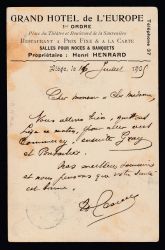 GRAND HOTEL de L'EUROPE
1er ORDRE
Place du Théâtre et Boulevard de la Sauvenière
RESTAURANT A PRIX FIXE & A LA CARTE
SALLES POUR NOCES & BANQUETS
Propriétaire : Henri HENRARD
Téléphone 97
Liège, le 14 Juillet 1905
Cher monsieur &
Nous allons bien, quittons
Liège ce matin, pour aller
et
Nos meilleurs souvenirs
et nous pensons que votre santé
est bonne